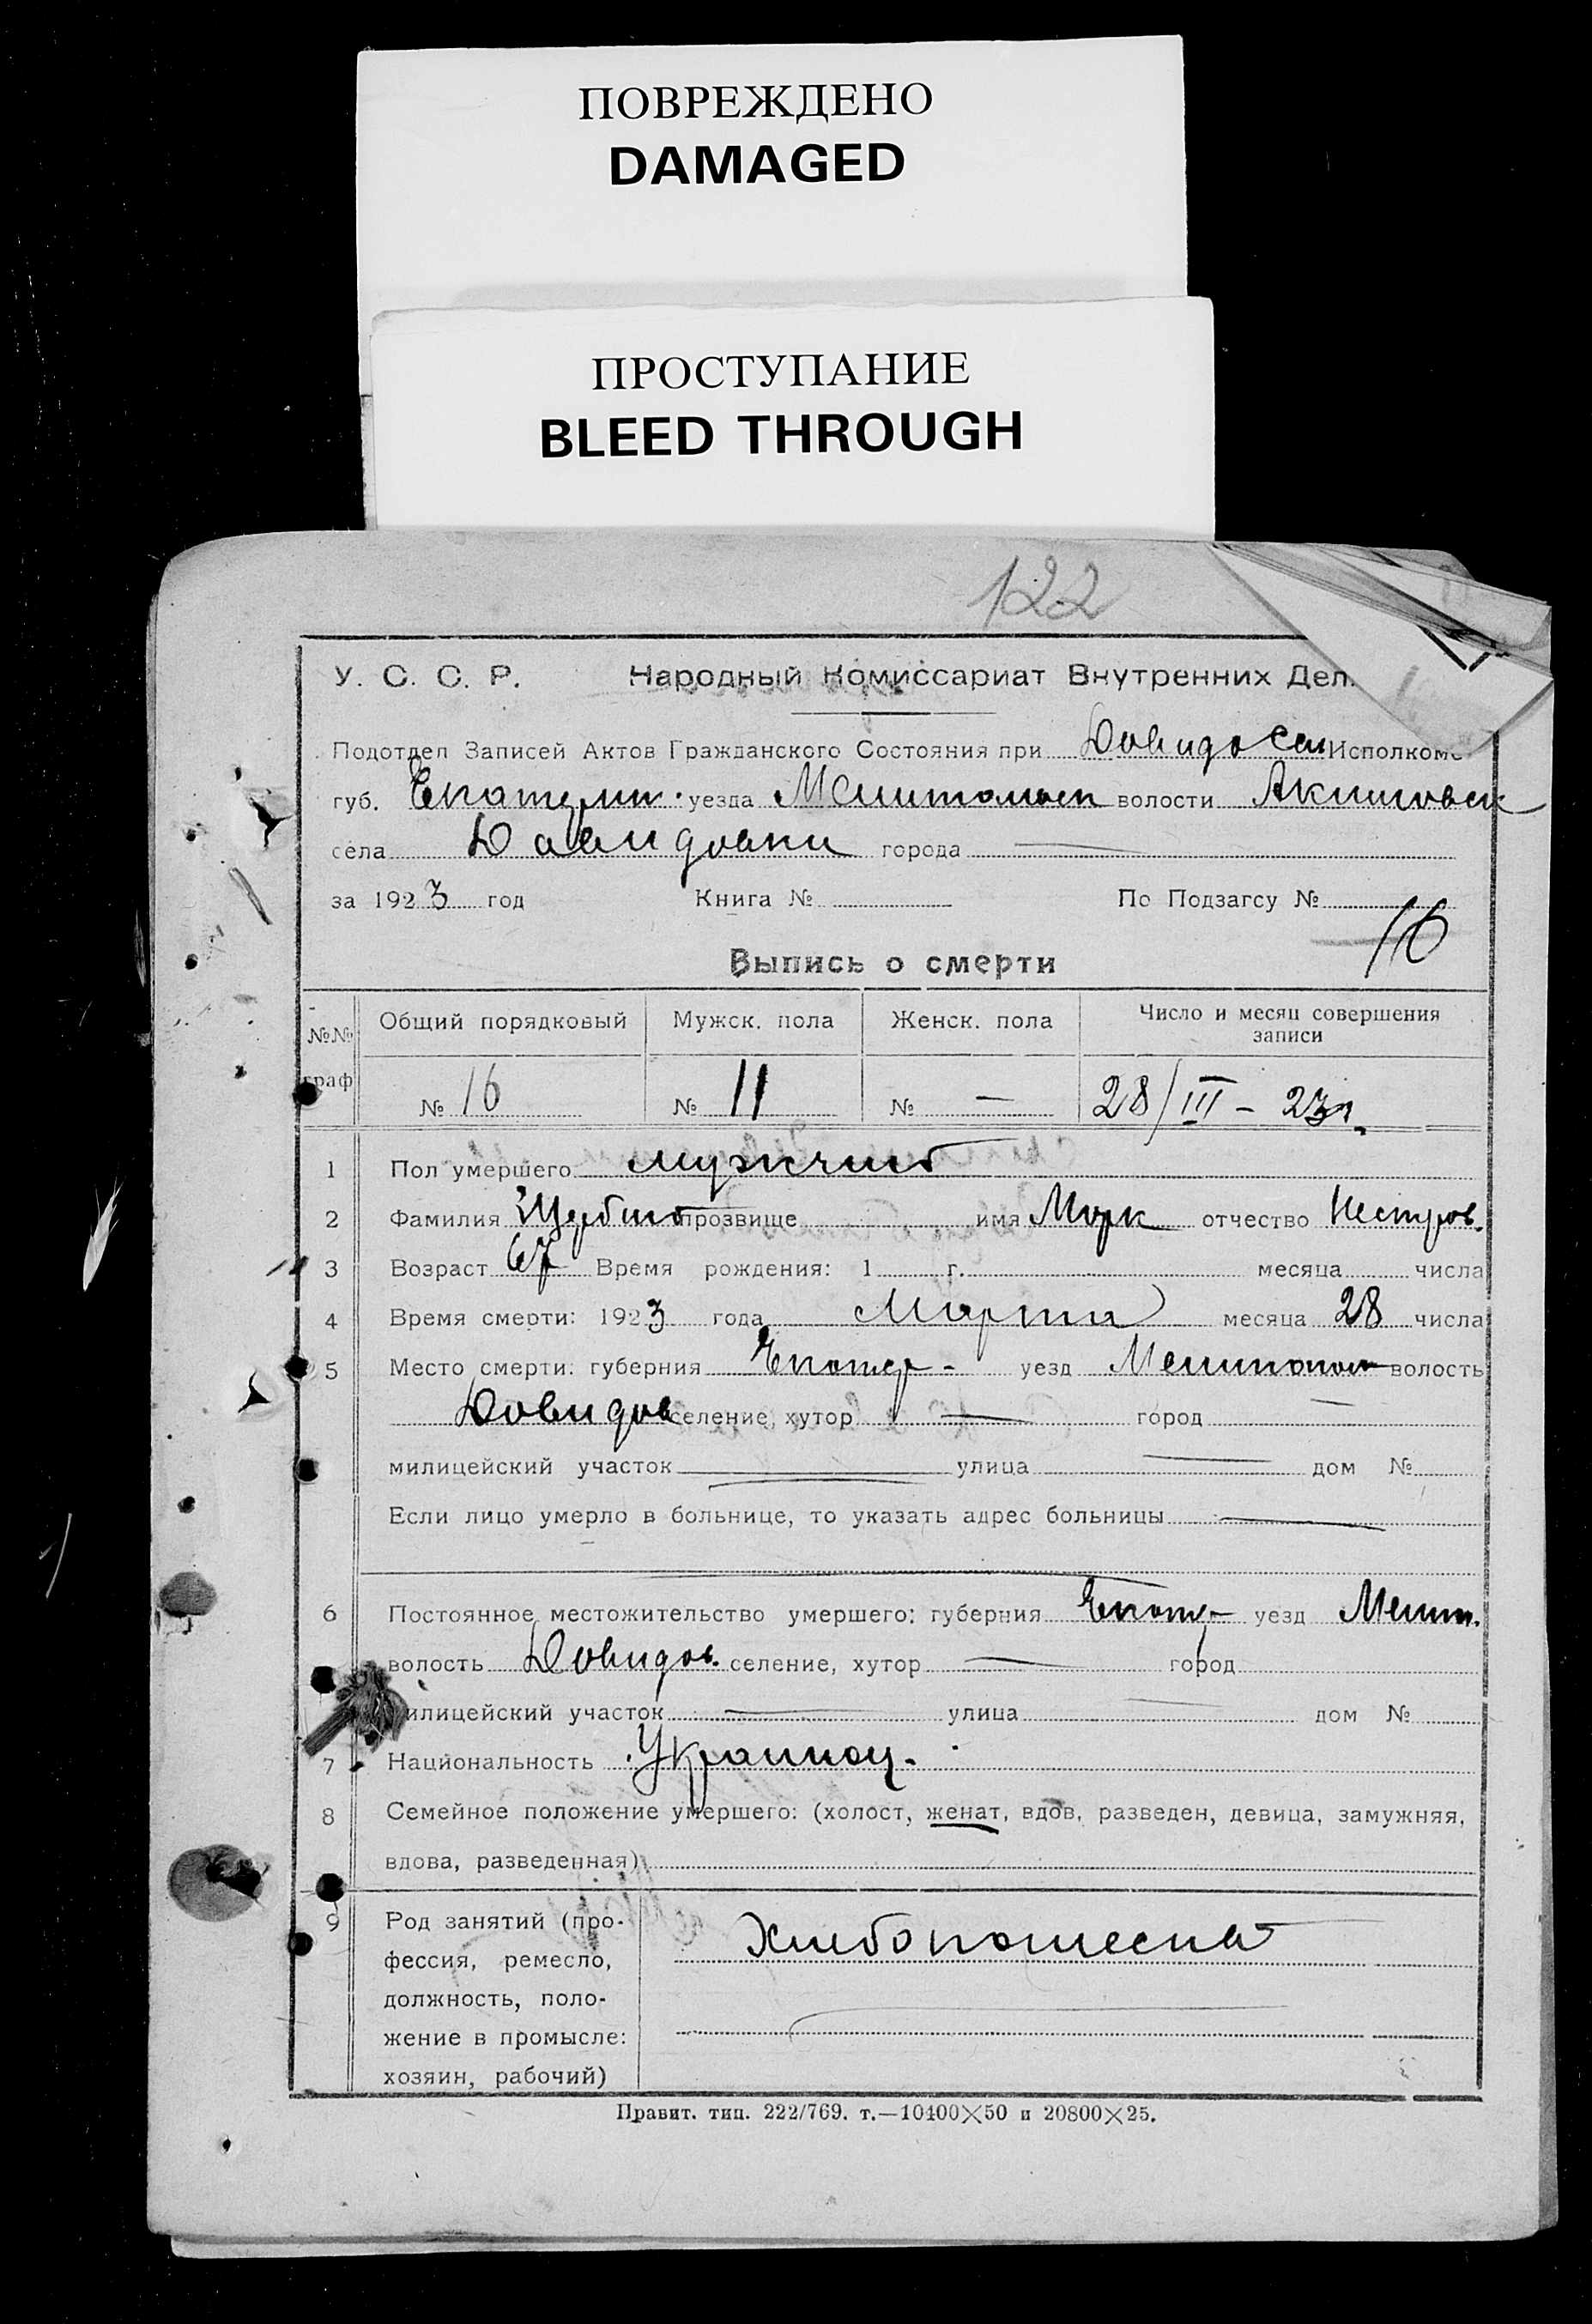 ПОВРЕЖДЕНО
DAMAGED
ПРОСТУПАНИЕ
BLEED THROUGH
122
У. С. С. Р. Народный Комиссариат Внутренних Дел.
Подотдел Записей Актов Гражданского Состояния при Довидо Сел Исполкоме
губ. Екатерин. уезда Мелитопольск волости Акимовск
села Давидовки города —
за 1923 год Книга № По Подзагсу №
16
Выпись о смерти
№№ граф Общий порядковый Мужск. пола Женск. пола Число и месяц совершения записи
№ 16 № 11 № — 28/III – 23г.
1 Пол умершего мужчина
2 Фамилия Щербина прозвище имя Марк отчество Нестеров.
3 Возраст 67 Время рождения: 1 г. месяца числа
4 Время смерти: 1923 года Марта месяца 28 числа
5 Место смерти: губерния Екатер- уезд Мелитопол волость
Довидов селение, хутор — город —
милицейский участок — улица — дом №
Если лицо умерло в больнице, то указать адрес больницы —
6 Постоянное местожительство умершего: губерния Екатер- уезд Мелит.
волость Довидов. селение, хутор — город
милицейский участок — улица — дом №
7 Национальность Украинец.
8 Семейное положение умершего: (холост, женат, вдов, разведен, девица, замужняя,
вдова, разведенная)
9 Род занятий (про- Хлебопашества
фессия, ремесло,
должность, поло-
жение в промысле:
хозяин, рабочий)
Правит. тип. 222/769. т.—10400×50 и 20800×25.